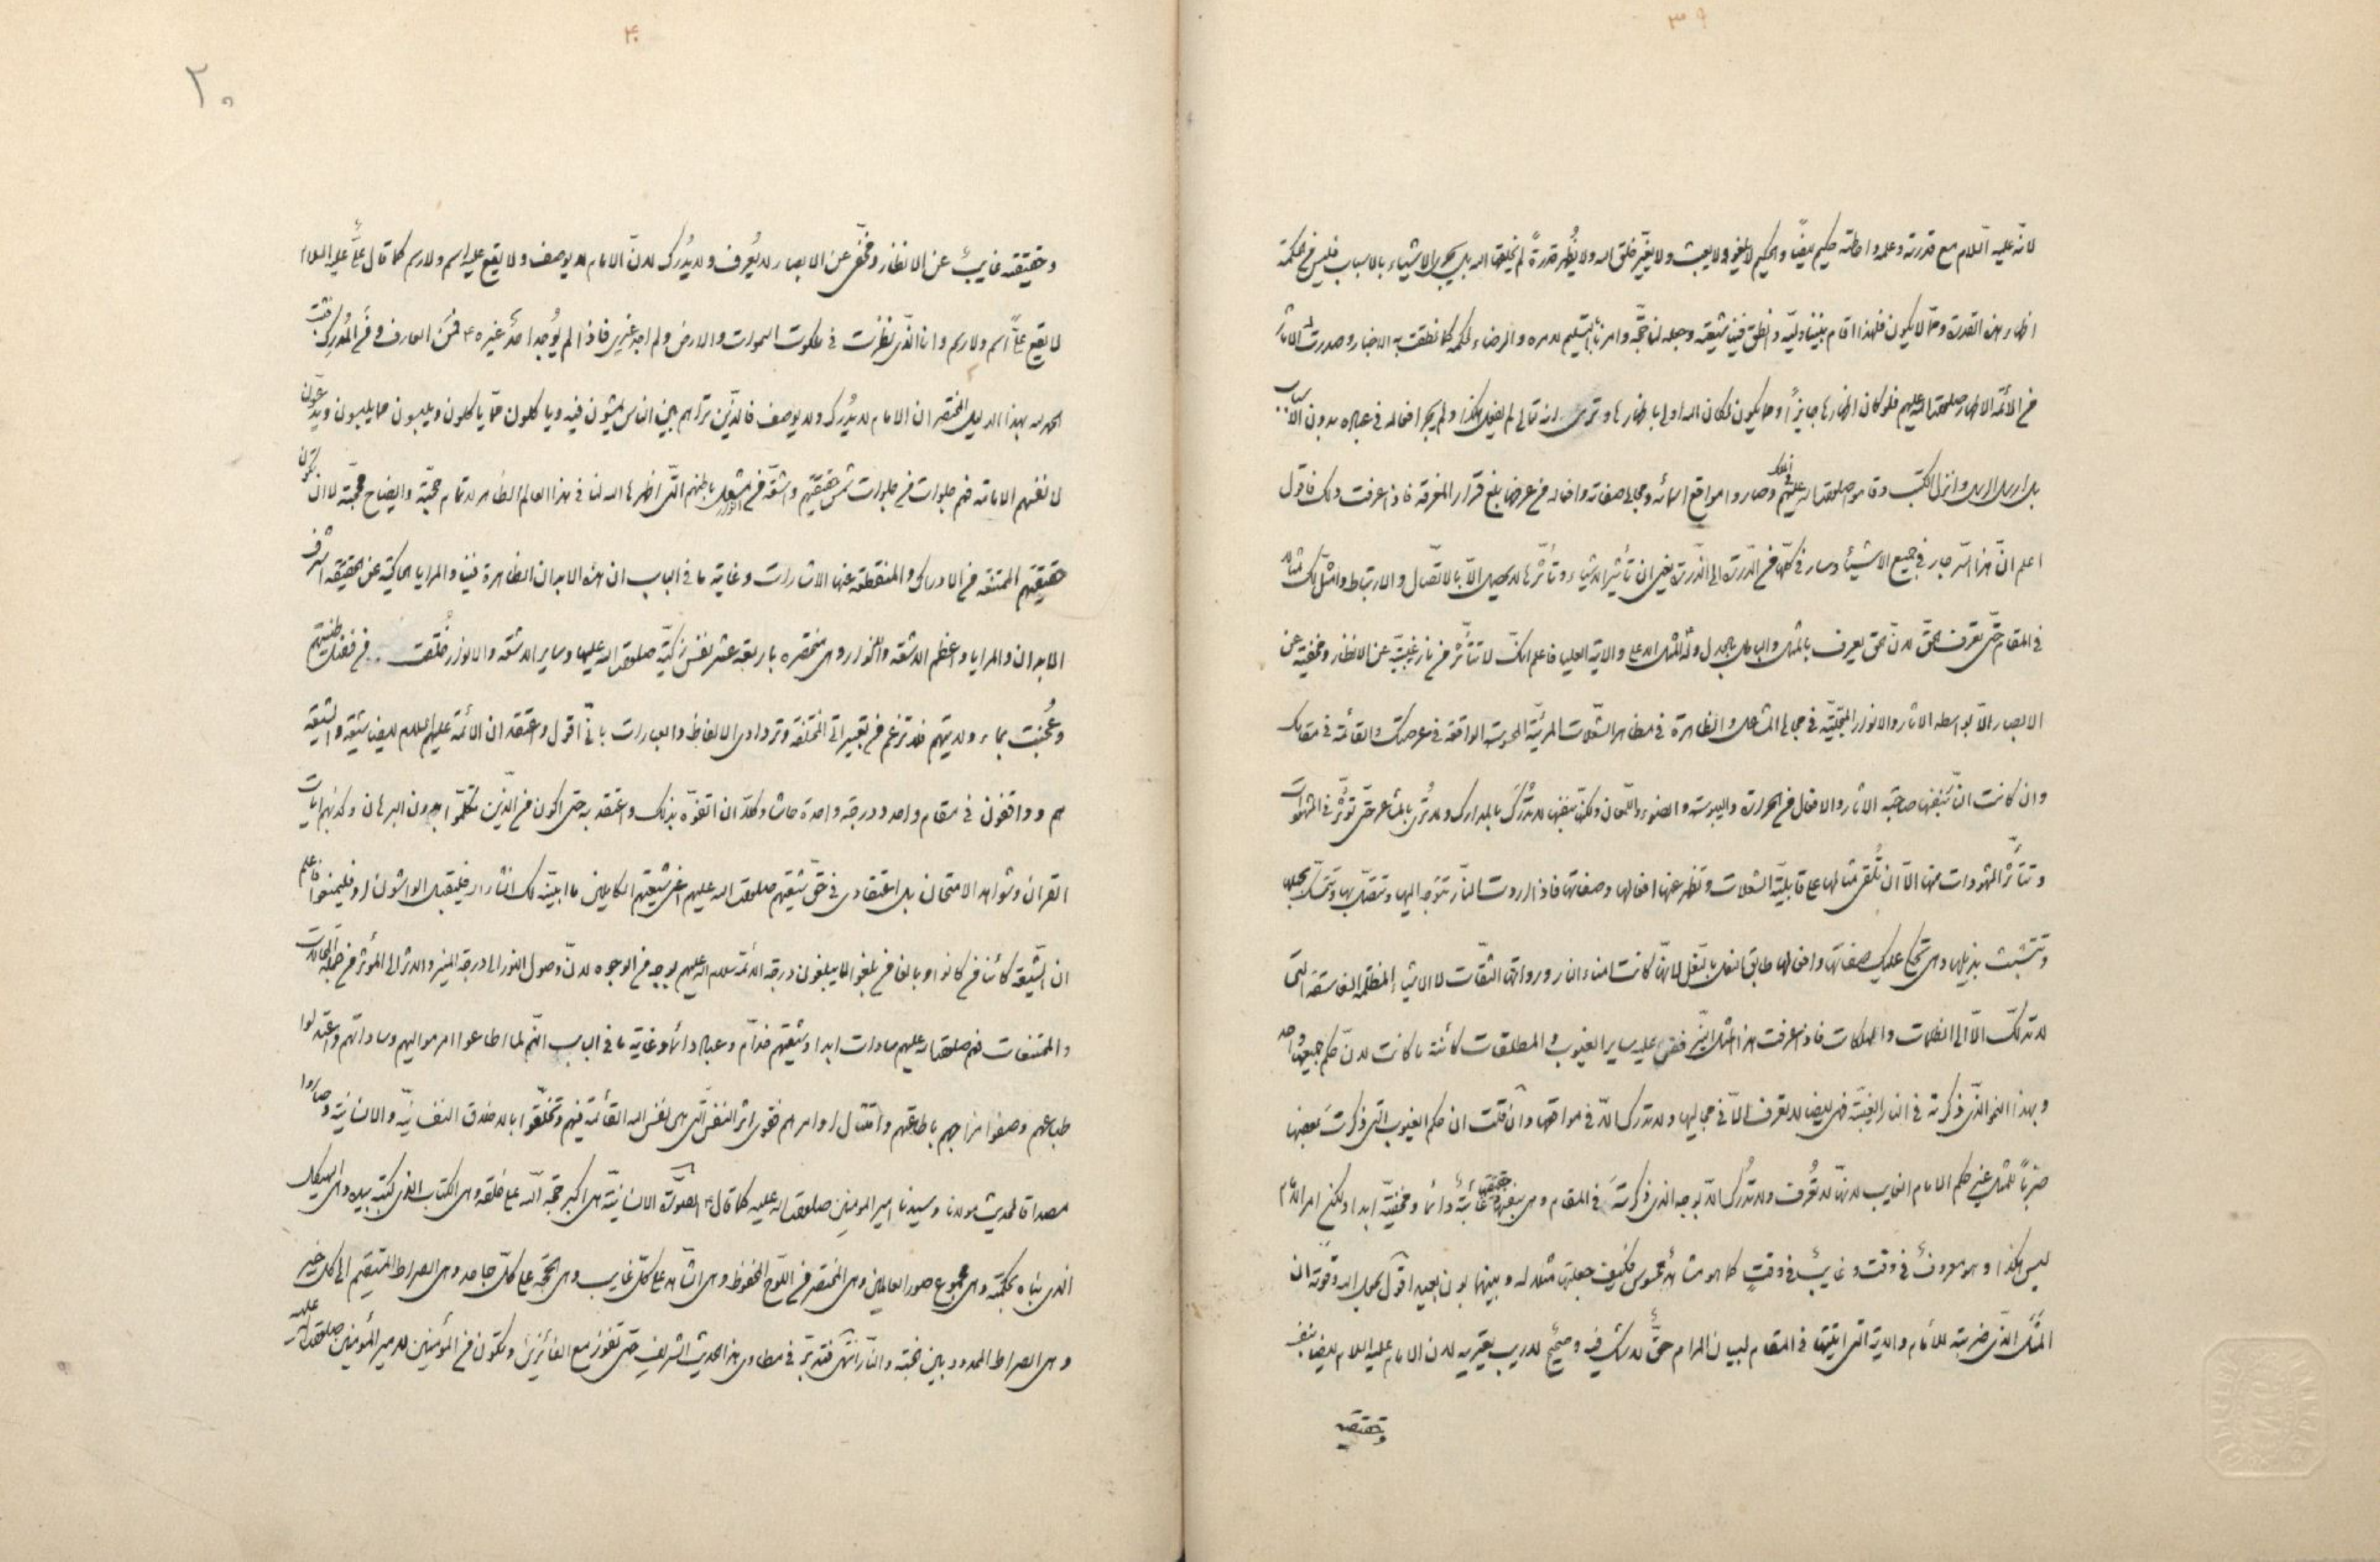 ٣٩
لانّه عليه السّلام مع قدرته وعلمه واحاطته حكيم ايضاً والحكيم لا يلغو ولا يعبث ولا يغيّر خلق الله ولا يُظهر قدرةً لم يخلقها الله بل يجرى الاشياء بالاسباب فليس فى حكمته
اظهار هذه القدرة وممّا لا يكون فلهذا اقام بيننا وليّه وانطق فينا شيعته وجعله لنا حجّة وامرنا بالتسليم لامره والرضاء لحكمه كما نطقت به الاخبار وصدرت الآثار
من الائمّة الاطهار صلوات الله عليهم فلو كان اظهارها جايزاً ومما يكون لكان الله اولى باظهارها وترى انه تعالى لم يفعل هكذا ولم يجر افعاله فى عباده بدون الاسباب
بل ارسل الرسل وانزل الكتب وقاموا صلوات الله عليهم وصاروا مواقع اسمائه ومجالى صفاته وافعاله فى عرضنا بلغ قرار المعرفة فاذا عرفت ذلك فاقول
اعلم انّ هذا السّر جار فى جميع الاشياء وسار فى كلّها من الذّرة الى الذّرة يعنى ان تأثير الاشياء وتأثّرها لا يحصل الّا بالاتّصال والارتباط وامثّل لك مثالا
فى المقام حتّى تعرف الحقّ لانّ الحق يعرف بالمثل والباطل بالجدل ولله المثل الاعلى والآية العليا فاعلم انّك لا تتأثّر من نار غيبيّة عن الانظار ومخفية عن
الابصار الّا بواسطة الآثار والانوار المتجلّية فى مجالى المشاعل والظاهرة فى مظاهر الشعلات المرئيّة المحسوسة الواقعة فى عرصتك والقائمة فى مقامك
وان كانت النّار بنفسها صاحبة الآثار والافعال من الحرارة واليبوسة والضوء واللّمعان ولكن بنفسها لا تُدرَك بالمدارك ولا تُرى بالمشاعر حتّى تؤثّر فى المشهودات
وتتأثّر المشهودات منها الّا ان تُلقى مثالها على قابليّة الشعلات وتظهر عنها افعالها وصفاتها فاذا اردت النّار تتوجّه اليها وتتصل بها وتتمسّك بحبلها
وتتشبث بذيلها وهى تحكى عليك صفاتها وافعالها طابق النعل بالنعل لانّها كانت امناء النار ورواتها الثقات لا الاشياء المظلمة الفاسقة الّتى
لا تدلّك الّا الى الظلمات والهلكات فاذا عرفت هذا المثل البيّن فقس عليه ساير الغيوب والمطلقات كائنة ما كانت لانّ حكم جميعها واحد
وبهذا النحو الذى ذكرته فى النار الغيبيّة فهى ايضا لا تعرف الّا فى مجاليها ولا تدرك الّا فى مواقعها وان قلت ان حكم الغيوب التى ذكرتَ بعضها
ضرباً للمثل غير حكم الامام الغايب لانّها لا تُعرف ولا تُدرَك الّا بوجه الذى ذكرتَ فى المقام وهى بنفسها وحقيقتها غائبةٌ دائماً ومخفيّة ابداً ولكن امر الامام
ليس هكذا وهو معروفٌ فى وقت وغايبٌ فى وقتٍ كما هو مشاهَدٌ محسوس فكيف جعلتها مثلا له وبينهما بون بعيد اقول بحول الله وقوّته ان
المثل الذى ضربته للامام والآية التى اتيتها فى المقام لبيان المرام حقٌّ لا شك فيه وصحيحٌ لا ريب يعتريه لان الامام عليه السلام ايضا بنفسه
وحقيقته
۴۰
٢٠
وحقيقته غايبٌ عن الانظار ومخفى عن الابصار لا يُعرف ولا يُدرك لانّ الامام لا يوصف ولا يقع عليه اسم ولا رسم كما قال علىٌّ عليه السلام
لا يقع علىَّ اسم ولا رسم وانا الذى نظرت فى ملكوت السموات والارض ولم اجد غيرى فاذا لم يُوجد احدٌ غيره ع فمَن العارف ومَن المُدرِك فثبت
الحمد لله بهذا الدليل المختصر ان الامام لا يُدرك ولا يوصف فالذين تراهم بين الناس يمشون فيه وياكلون ممّا ياكلون ويلبسون مما يلبسون ويدّعون
لانفسهم الامامة فهم جلوات من جلوات شمس حقيقتهم واشعّة من مشعل باطنهم التى اظهرها الله لنا فى هذا العالم الظاهر لاتمام حجته وايضاح محجّته لا ان تكون
حقيقتهم الممتنعة من الادراك والمنقطعة عنها الاشارات وغاية ما فى الباب ان هذه الابدان الظاهرة فينا والمرايا الحاكية عن الحقيقة اشرف
الابدان والمرايا واعظم الاشعّة والانوار وهى منحصرة باربعة عشر نفس زكيّة صلوات الله عليها وساير الاشعّة والانوار خُلقت من فضل طينتهم
وعُجنت بماء ولايتهم فلا تزعم من تعبيراتى المختلفة وتردادى الالفاظ والعبارات بانّى اقول واعتقد ان الائمّة عليهم السلام ايضا شيعة والشيعة
هم وواقفون فى مقام واحد ودرجة واحدة حاشا وكلّا ان اتفوّه بذلك واعتقد به حتى اكون من الذين تكلّموا بدون البرهان وكذبهم آيات
القرآن وشواهد الامتحان بل اعتقادى فى حقّ شيعتهم صلوات الله عليهم اعنى شيعتهم الكاملين ما ابيّنه لك انشاء الله فليقبل الواشون او فليمنعوا فاعلم
ان الشيعة كائناً من كانوا وبالغاً من بلغوا لا يبلغون درجة الائمّة سلام الله عليهم بوجه من الوجوه لانّ وصول النور الى درجة المنير والاثر الى المؤثر من جملة المحالات
والممتنعات فهم صلوات الله عليهم سادات ابدا وشيعتهم خدّام وعباد دائما وغاية ما فى الباب انّهم لما اطاعوا امر مواليهم وساداتهم واعتدلوا
طباعهم وصفوا مزاجهم باطاعتهم وامتثال اوامرهم فقوى اثر النفس الّتى هى نفس الله القائمة فيهم وتخلّقوا بالاخلاق النفسانيّة والانسانيّة وصاروا
مصداقا لحديث مولانا وسيدنا امير المومنين صلوات الله عليه كما قال ع الصورة الانسانيّة هى اكبر حجّة الله على خلقه وهى الكتاب الذى كتبه بيده وهى الهيكل
الذى بناه بحكمته وهى مجموع صور العالمين وهى المختصر من اللّوح المحفوظ وهى الشّاهد على كلّ غايب وهى الحجّة على كلّ جاحد وهى الصراط المستقيم الى كل خير
وهى الصراط الممدود بين الجنّة والنّار انتهى فتدبّر فى مطاوى هذا الحديث الشريف حتى تفوز مع الفائزين وتكون من المؤمنين لامير المؤمنين صلوات الله عليه